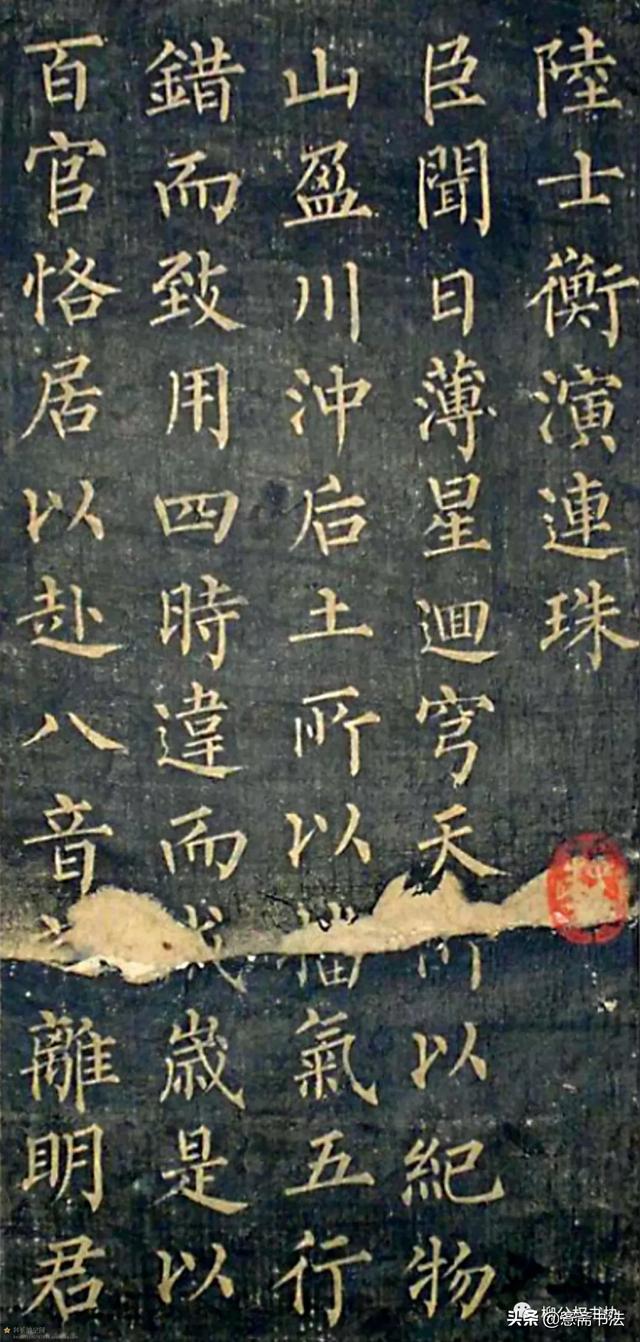 陸士衡演連珠
臣聞日薄星迴穹天所以紀物
山盈川沖后土所以播氣五行
錯而致用四時違而成歲是以
百官恪居以赴八音之離明君
柳公权书协
头条
书法